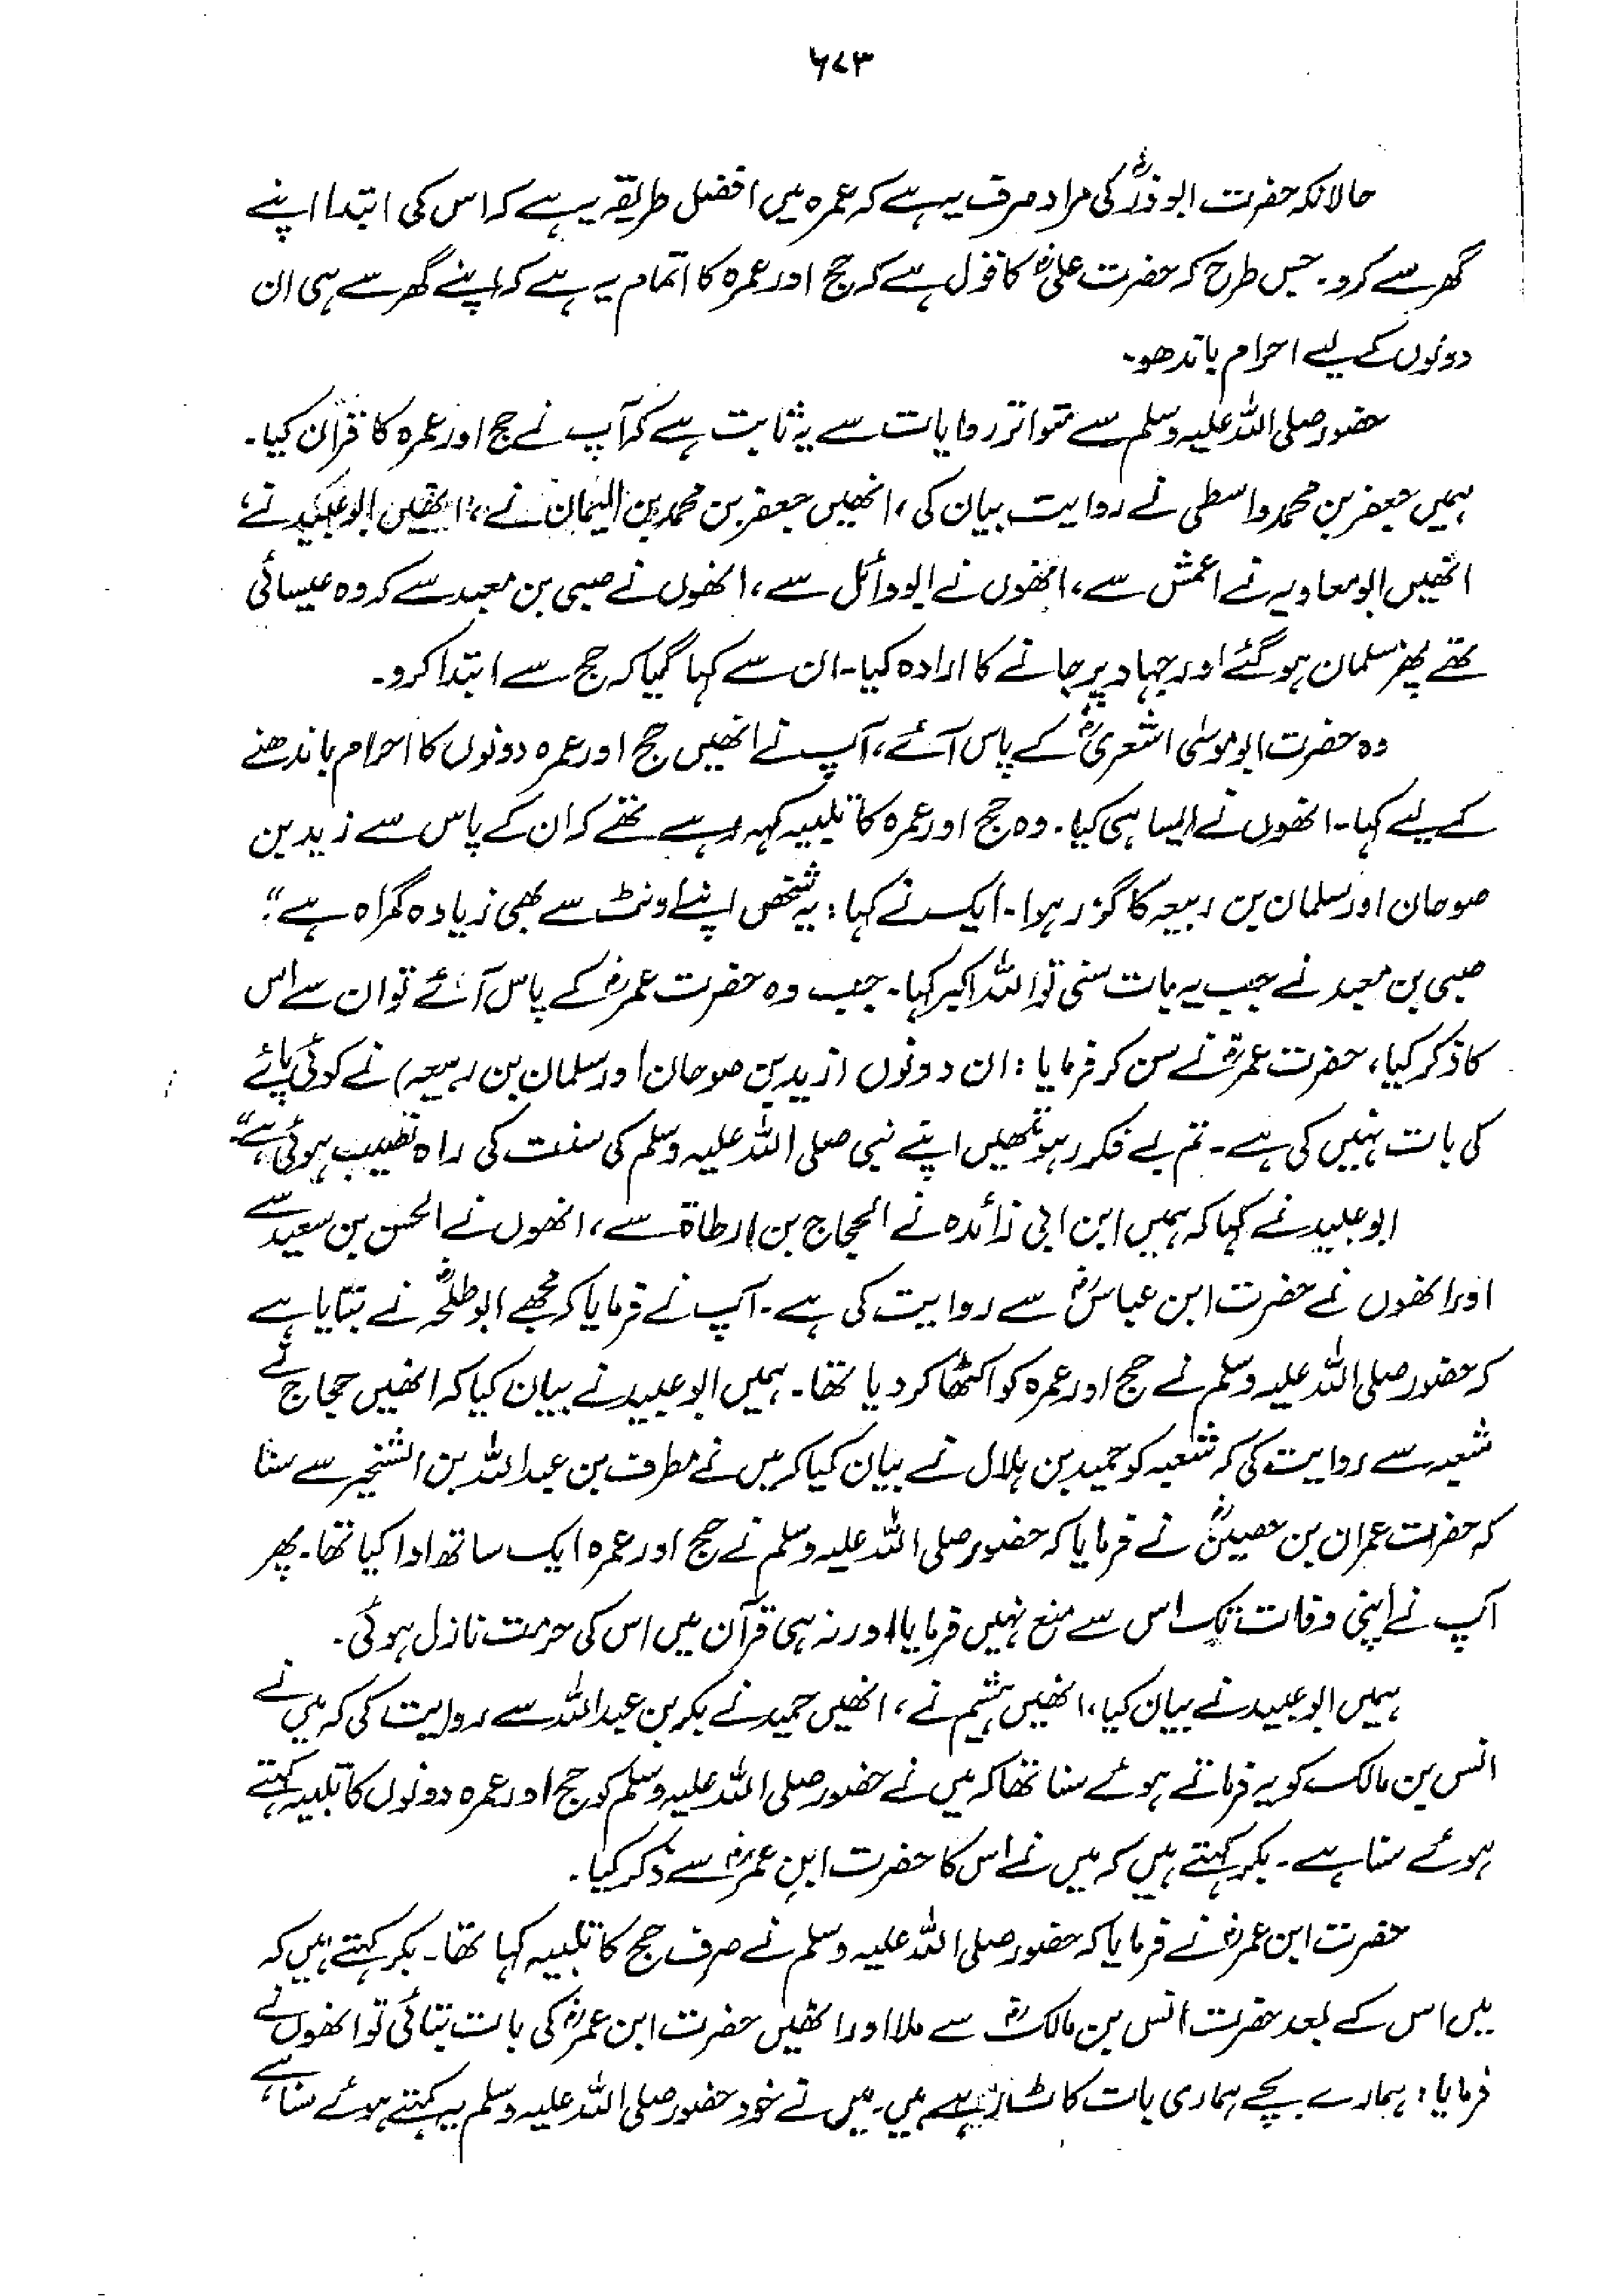 ۶۷۳
حالانکہ حضرت ابوذرؓ کی مراد صرف یہ ہے کہ عمرہ میں افضل طریقہ یہ ہے کہ اس کی ابتدا اپنے
گھر سے کرو۔ جس طرح کہ حضرت علیؓ کا قول ہے کہ حج اور عمرہ کا اتمام یہ ہے کہ اپنے گھر سے ہی ان
دونوں کے لیے احرام باندھو۔
حضور صلی اللہ علیہ وسلم سے متواتر روایات سے یہ ثابت ہے کہ آپ نے حج اور عمرہ کا قران کیا۔
ہمیں جعفر بن محمد واسطی نے روایت بیان کی، انھیں جعفر بن محمد بن الیمان نے، انھیں ابوعبید نے،
انھیں ابومعاویہ نے اعمش سے، انھوں نے ابووائل سے، انھوں نے صبی بن معبد سے کہ وہ عیسائی
تھے پھر مسلمان ہوگئے اور جہاد پر جانے کا ارادہ کیا۔ ان سے کہا گیا کہ حج سے ابتدا کرو۔
وہ حضرت ابوموسٰی اشعریؓ کے پاس آئے، آپ نے انھیں حج اور عمرہ دونوں کا احرام باندھنے
کے لیے کہا۔ انھوں نے ایسا ہی کیا۔ وہ حج اور عمرہ کا تلبیہ کہہ رہے تھے کہ ان کے پاس سے زید بن
صوحان اور سلمان بن ربیعہ کا گزر ہوا۔ ایک نے کہا: یہ شخص اپنے اونٹ سے بھی زیادہ گمراہ ہے“۔
صبی بن معبد نے جب یہ بات سنی تو اللہ اکبر کہا۔ جب وہ حضرت عمرؓ کے پاس آئے تو ان سے اس
کا ذکر کیا، حضرت عمرؓ نے سن کر فرمایا: ان دونوں (زید بن صوحان اور سلمان بن ربیعہ) نے کوئی پائے
کی بات نہیں کی ہے۔ تم بے فکر رہو تمھیں اپنے نبی صلی اللہ علیہ وسلم کی سنت کی راہ نصیب ہوئی ہے“۔
ابوعبید نے کہا کہ ہمیں ابن ابی زائدہ نے الحجاج بن ارطاۃ سے، انھوں نے الحسن بن سعید سے
اور انھوں نے حضرت ابن عباسؓ سے روایت کی ہے۔ آپ نے فرمایا کہ مجھے ابوطلحہؓ نے بتایا ہے
کہ حضور صلی اللہ علیہ وسلم نے حج اور عمرہ کو اکٹھا کر دیا تھا۔ ہمیں ابوعبید نے بیان کیا کہ انھیں حجاج نے
شعبہ سے روایت کی کہ شعبہ کو حمید بن ہلال نے بیان کیا کہ میں نے مطرف بن عبداللہ بن الشخیر سے سنا
کہ حضرت عمران بن حصینؓ نے فرمایا کہ حضور صلی اللہ علیہ وسلم نے حج اور عمرہ ایک ساتھ ادا کیا تھا۔ پھر
آپ نے اپنی وفات تک اس سے منع نہیں فرمایا اور نہ ہی قرآن میں اس کی حرمت نازل ہوئی۔
ہمیں ابوعبید نے بیان کیا، انھیں ہشیم نے، انھیں حمید نے بکر بن عبداللہ سے روایت کی کہ میں نے
انس بن مالک کو یہ فرماتے ہوئے سنا تھا کہ میں نے حضور صلی اللہ علیہ وسلم کو حج اور عمرہ دونوں کا تلبیہ کہتے
ہوئے سنا ہے۔ بکر کہتے ہیں کہ میں نے اس کا حضرت ابن عمرؓ سے ذکر کیا۔
حضرت ابن عمرؓ نے فرمایا کہ حضور صلی اللہ علیہ وسلم نے صرف حج کا تلبیہ کہا تھا۔ بکر کہتے ہیں کہ
میں اس کے بعد حضرت انس بن مالکؓ سے ملا اور انھیں حضرت ابن عمرؓ کی بات بتائی تو انھوں نے
فرمایا: ہمارے بچے ہماری بات کاٹ رہے ہیں۔ میں نے خود حضور صلی اللہ علیہ وسلم یہ کہتے ہوئے سنا ہے،